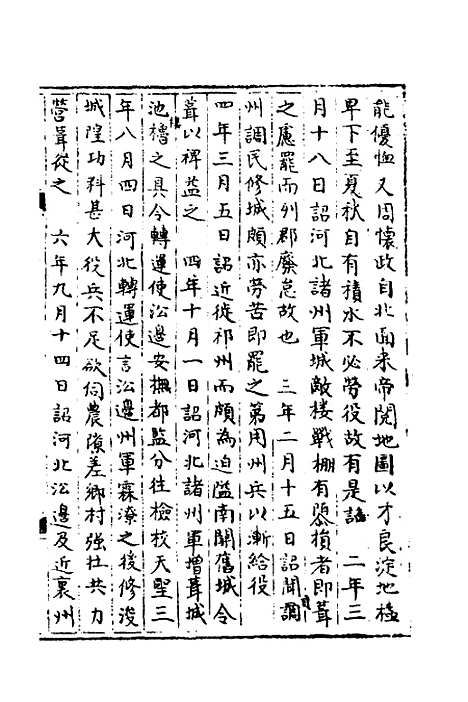 能優恤又周懷政自北面來帝閱地圖以才良淀地極
卑下至夏秋自有積水不必勞役故有是詔　二年三
月十八日詔河北諸州軍城敵樓戰棚有隳損者即葺
之慮罷而列郡廢怠故也　三年二月十五日詔聞調
州調民修城頗亦勞苦即罷之第用州兵以漸給役
四年三月五日詔近徙祁州而頗為迫隘南關舊城令
葺以裨益之　四年十月一日詔河北諸州軍增葺城
池樓櫓之具令轉運使沿邊安撫都監分往檢校天聖三
年八月四日河北轉運使言沿邊州軍霖潦之後修浚
城隍功料甚大役兵不足欲伺農隙差鄉村強壯共力
營葺從之　六年九月十四日詔河北沿邊及近裏州